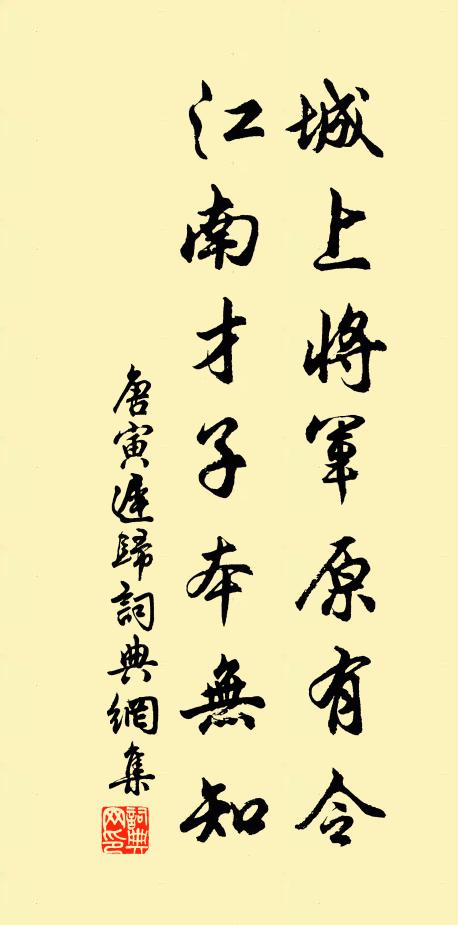 城上將軍原有令
江南才子本無知
唐寅遲歸詞典網集
詞典网印